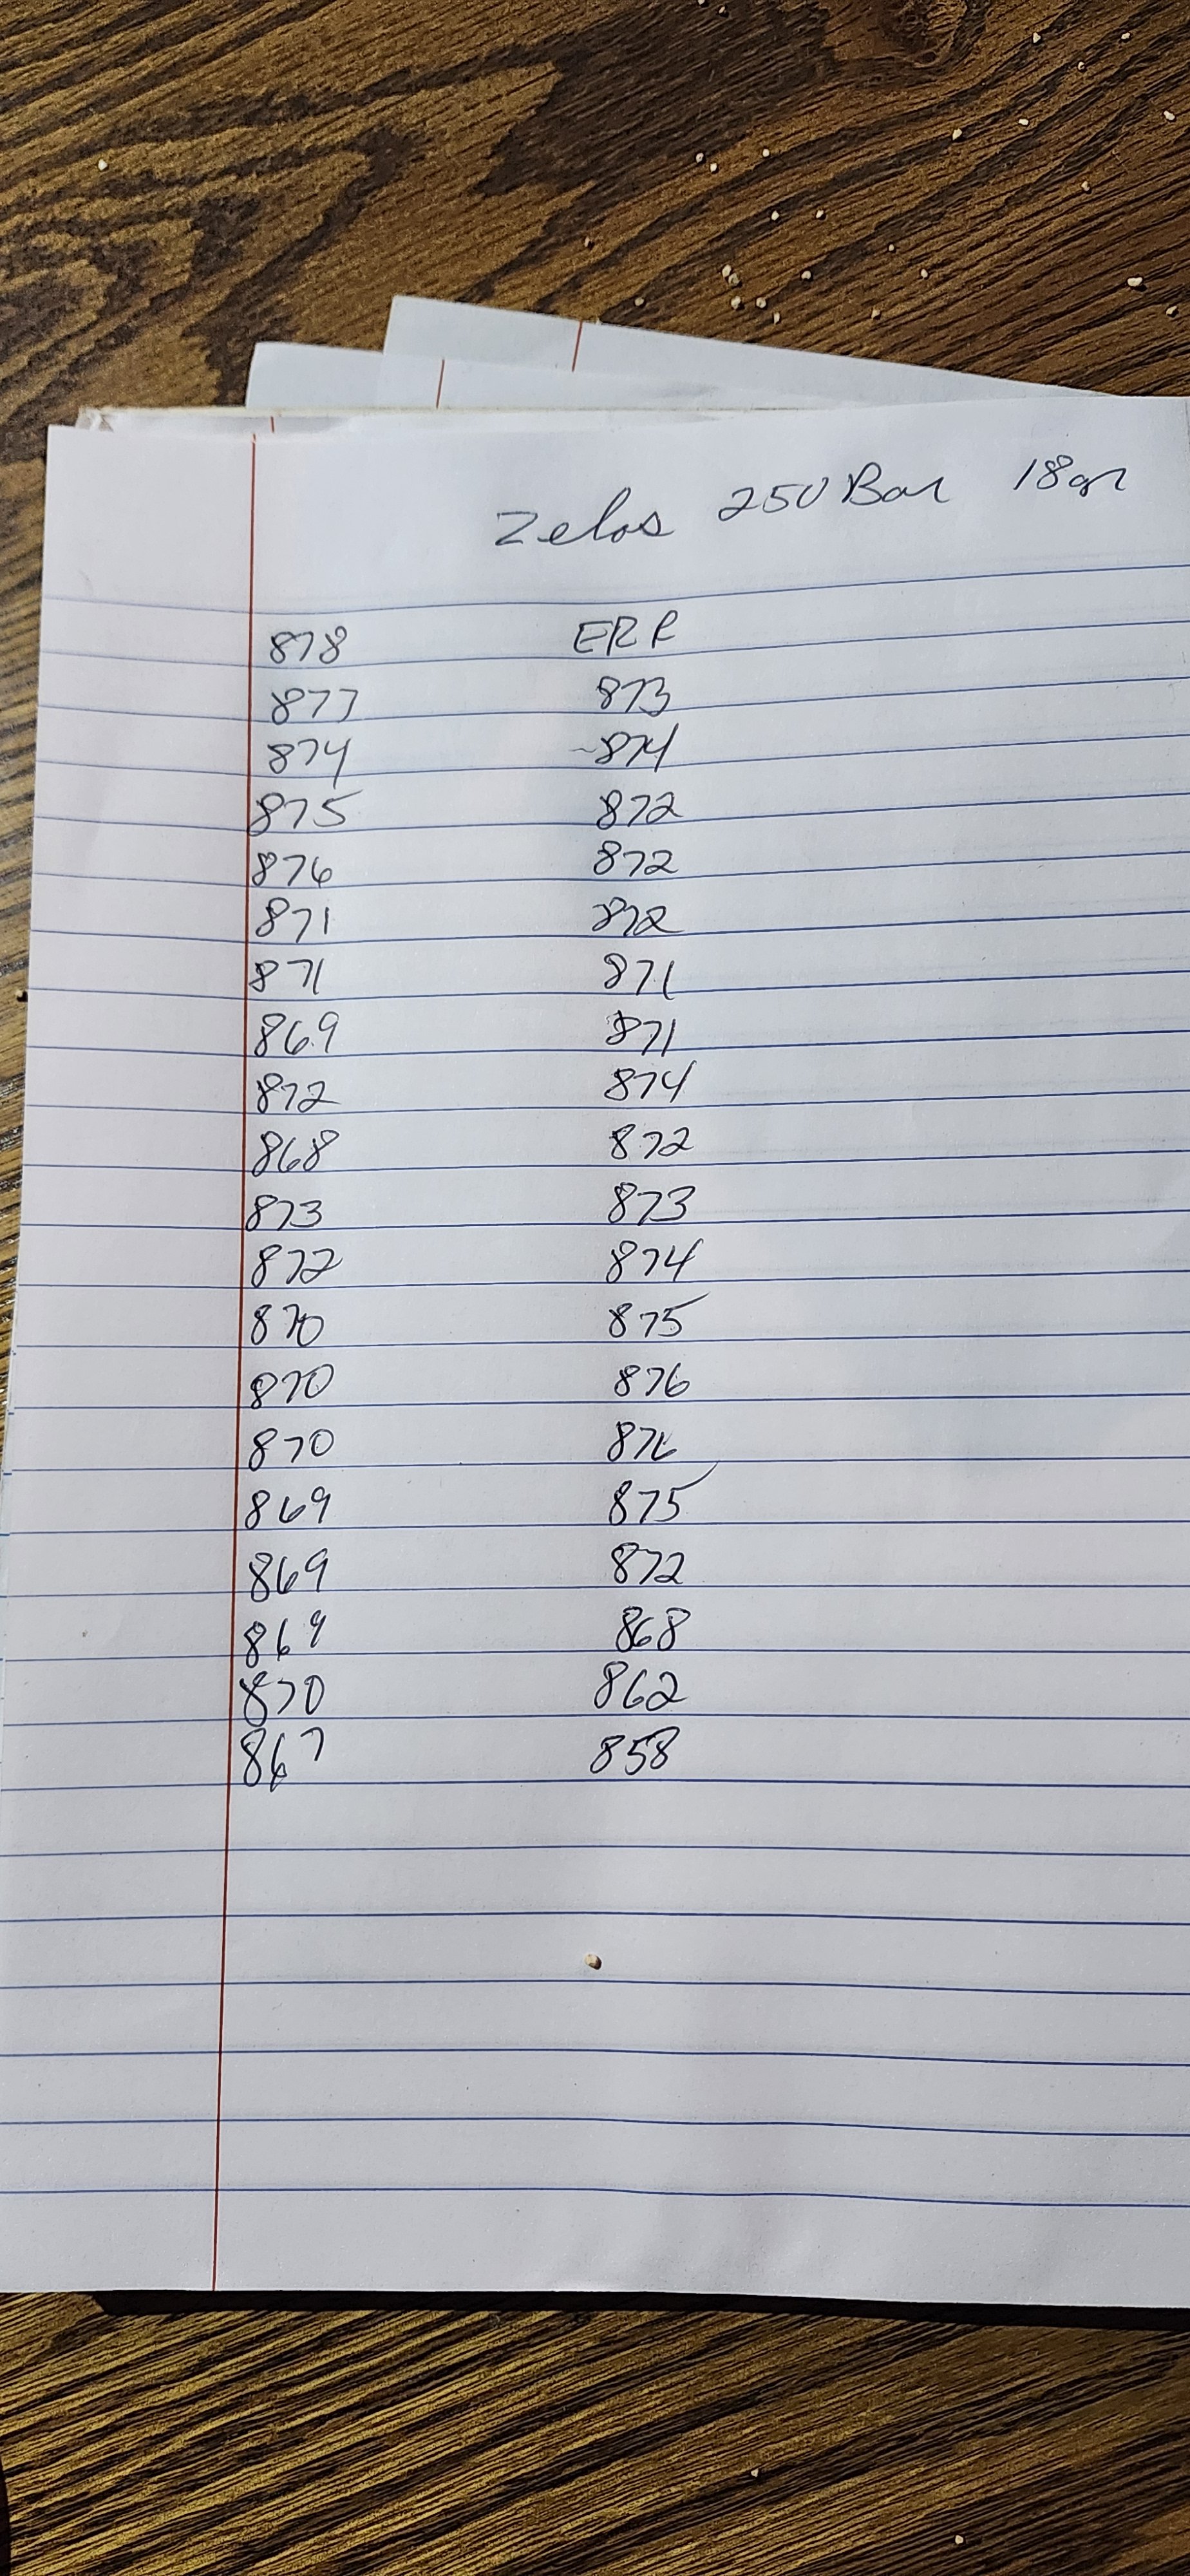 Zelos 250 Bar 18gr
878 ERR
877 873
874 ~874
875 872
876 872
871 872
871 871
869 871
872 874
868 872
873 873
872 874
870 875
870 876
870 876
869 875
869 872
869 868
870 862
867 858